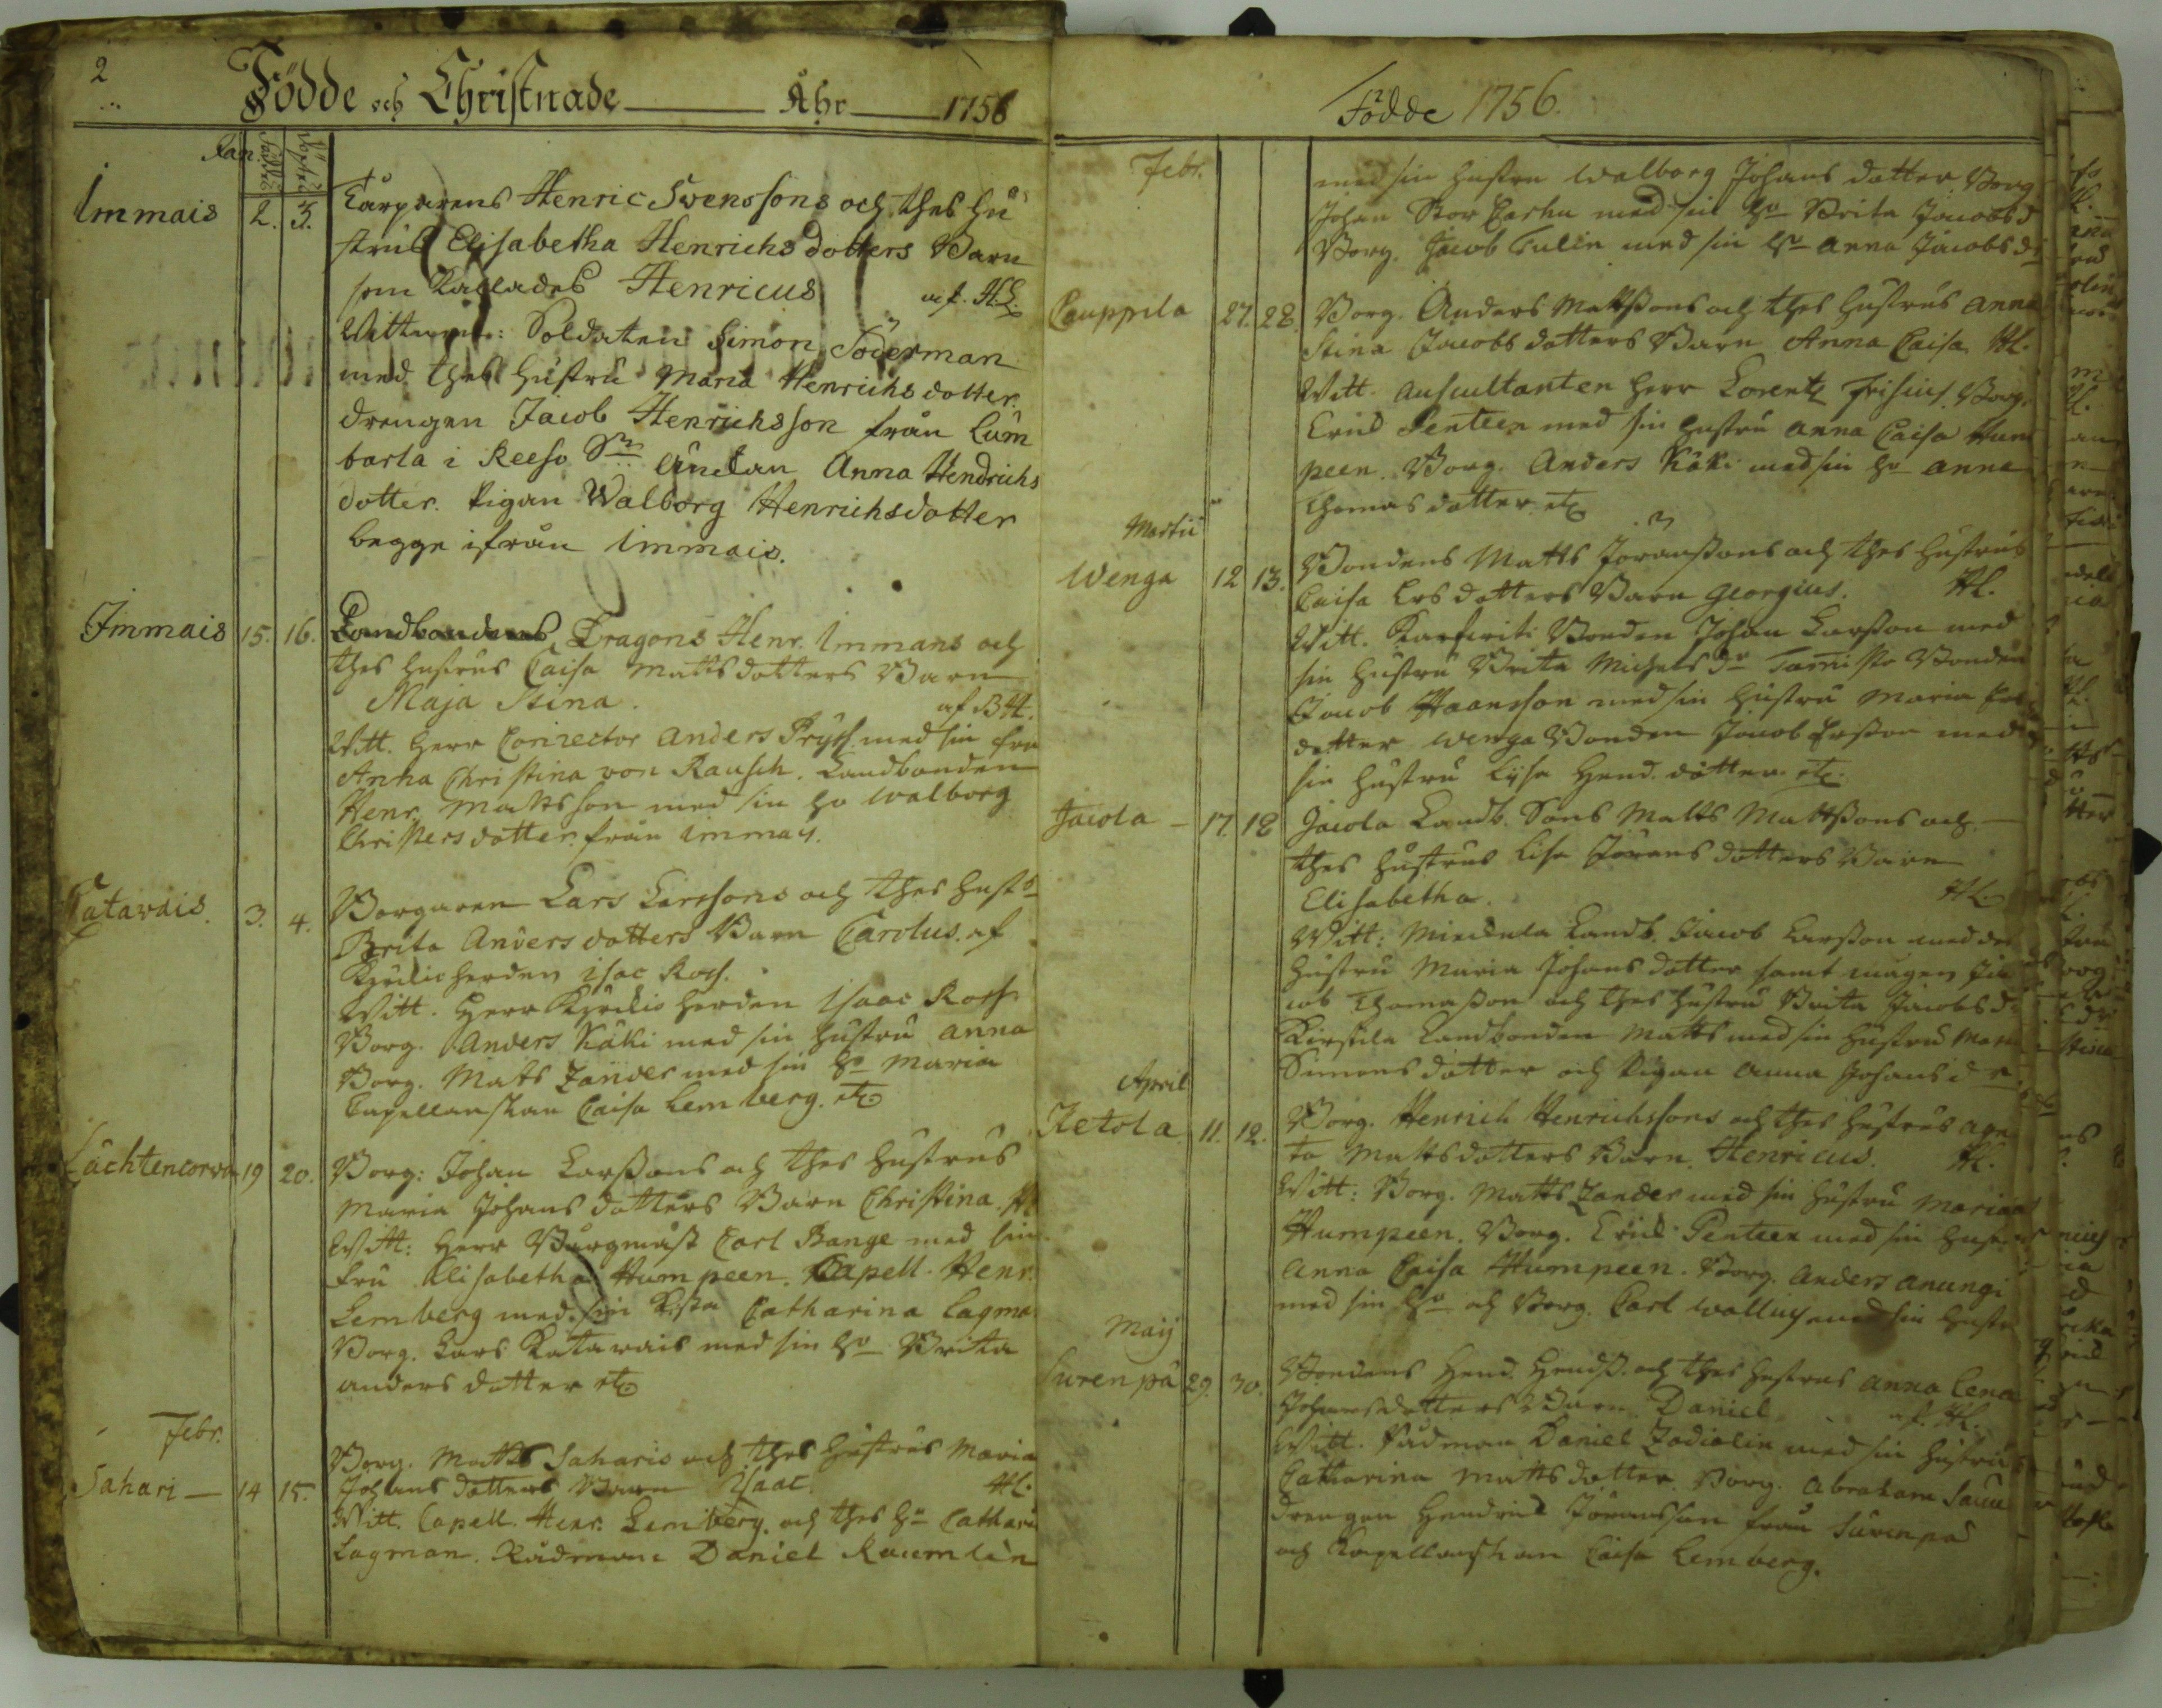 2
Födde och Christnade Åhr 1756
Jan. Födde Döpte
Immais 2. 3. Torparens Henric Svenssons och thes hu
strus Elisabetha Henrichs dotters Barn
som kallades Henricus af. H.L.
Wittnen: Soldaten Simon Söderman
med thes hustru Maria Henrichsdotter.
drengen Jacob Henrichsson från Lum
barla i Reso Sn Änckan Anna Hendrichs
dotter. Pigan Walborg Henrichsdotter
begge ifrån Immais.
Immais 15. 16. Landbondens Dragons Henr. Immans och
thes hustrus Caisa Mattsdotters Barn
Maja Stina. af BH.
Witt. Herr Conrector Anders Pryss med sin fru
Anna Christina von Rausch. Landbonden
Henr. Mattsson med sin ho Walborg
Christersdotter från Immais.
Catavais. 3. 4. Borgaren Lars Larssons och thes hust
Brita Andersdotters Barn Carolus. af
Kyrckioherden Isac Ross.
Witt. Herr Kyrckioherden Isaac Ross
Borg. Anders Käki med sin hustru Anna
Borg. Mats Zander med sin ho Maria
Capellanskan Caisa Lemberg. etc
Lächtencorva 19 20. Borg: Johan Larssons och thes hustrus
Maria Johansdotters Barn Christina. HL
Witt: Herr Borgmäst Carl Bange med sin
fru Elisabetha Humpeen. Capell. Henr.
Lemberg med sin Kjsta Catharina Lagma
Borg. Lars Katavais med sin ho Brita
Anders dotter etc
Febr.
Sahari 14 15. Borg. Matts Saharis och thes hustrus Maria
Johans dotters Barn Isaac. HL.
Witt. Capell. Henr. Lemberg. och thes ho Cathari
Lagman. Rådman Daniel Raumlin
Födde 1756.
Febr. med sin hustru Walborg Johans dotter Borg
Johan Stor med sin ho Brita Jacobs d
Borg. Jacob Tulin med sin ho Anna Jacobs dr
Cauppila 27. 28. Borg. Anders Mattssons och thes hustrus Anna
Stina Jacobs dotters Barn Anna Caisa HL.
Witt. Auscultanten Herr Lorentz Frisius. Borg.
Eric Penteen med sin hustru Anna Caisa Hum
peen. Borg. Anders Käki med sin ho Anna
Thomas dotter etc
Martii
Wenga 12 13. Bondens Matts Joranssons och thes hustrus
Caisa Ers dotters Barn Georgius. HL.
Witt. Bonden Johan Larsson med
sin hustru Brita Michels dr Tamisto Bonden
Jacob Haansson med sin hustru Maria
dotter Wenga Bonden Jacob Ersson med
sin hustru Lisa Hend. dotter etc.
Jacola 17. 18 Jacola Landb. Sons Matts Mattssons och
thes hustrus Lisa Jörans dotters Barn
Elisabetha. HL.
Witt: Landb. Jacob Larsson med des
hustru Maria Johans dotter samt mågen Ja
cob Thomasson och thes hustru Brita Jacobs d
Kirstila Landbonden Matts med sin hustru Maria
Simons dotter och Pigan Anna Johans dr
April
Ketola 11. 12. Borg. Henrich Henrichssons och thes hustrus Aga
ta Mattsdotters Barn Henricus. HL.
Witt: Borg. Matts Zander med sin hustru Maria
Humpeen. Borg. Eric Penteen med sin hust
Anna Caisa Humpeen. Borg. Anders Anungi
med sin ho och Borg. Carl Wallius med sin hustr
Maij
Surenpä 29. 30. Bondens Hend. Hendss. och thes hustrus Anna Lena
Johansdotters Barn Daniel af. HL.
Witt. Rådman Daniel Zadiolin med sin hustru
Catharina Mattsdotter. Borg. Abraham Saur
drengen Hendric Jöransson från Surenpä
och Capellanskan Caisa Lemberg.